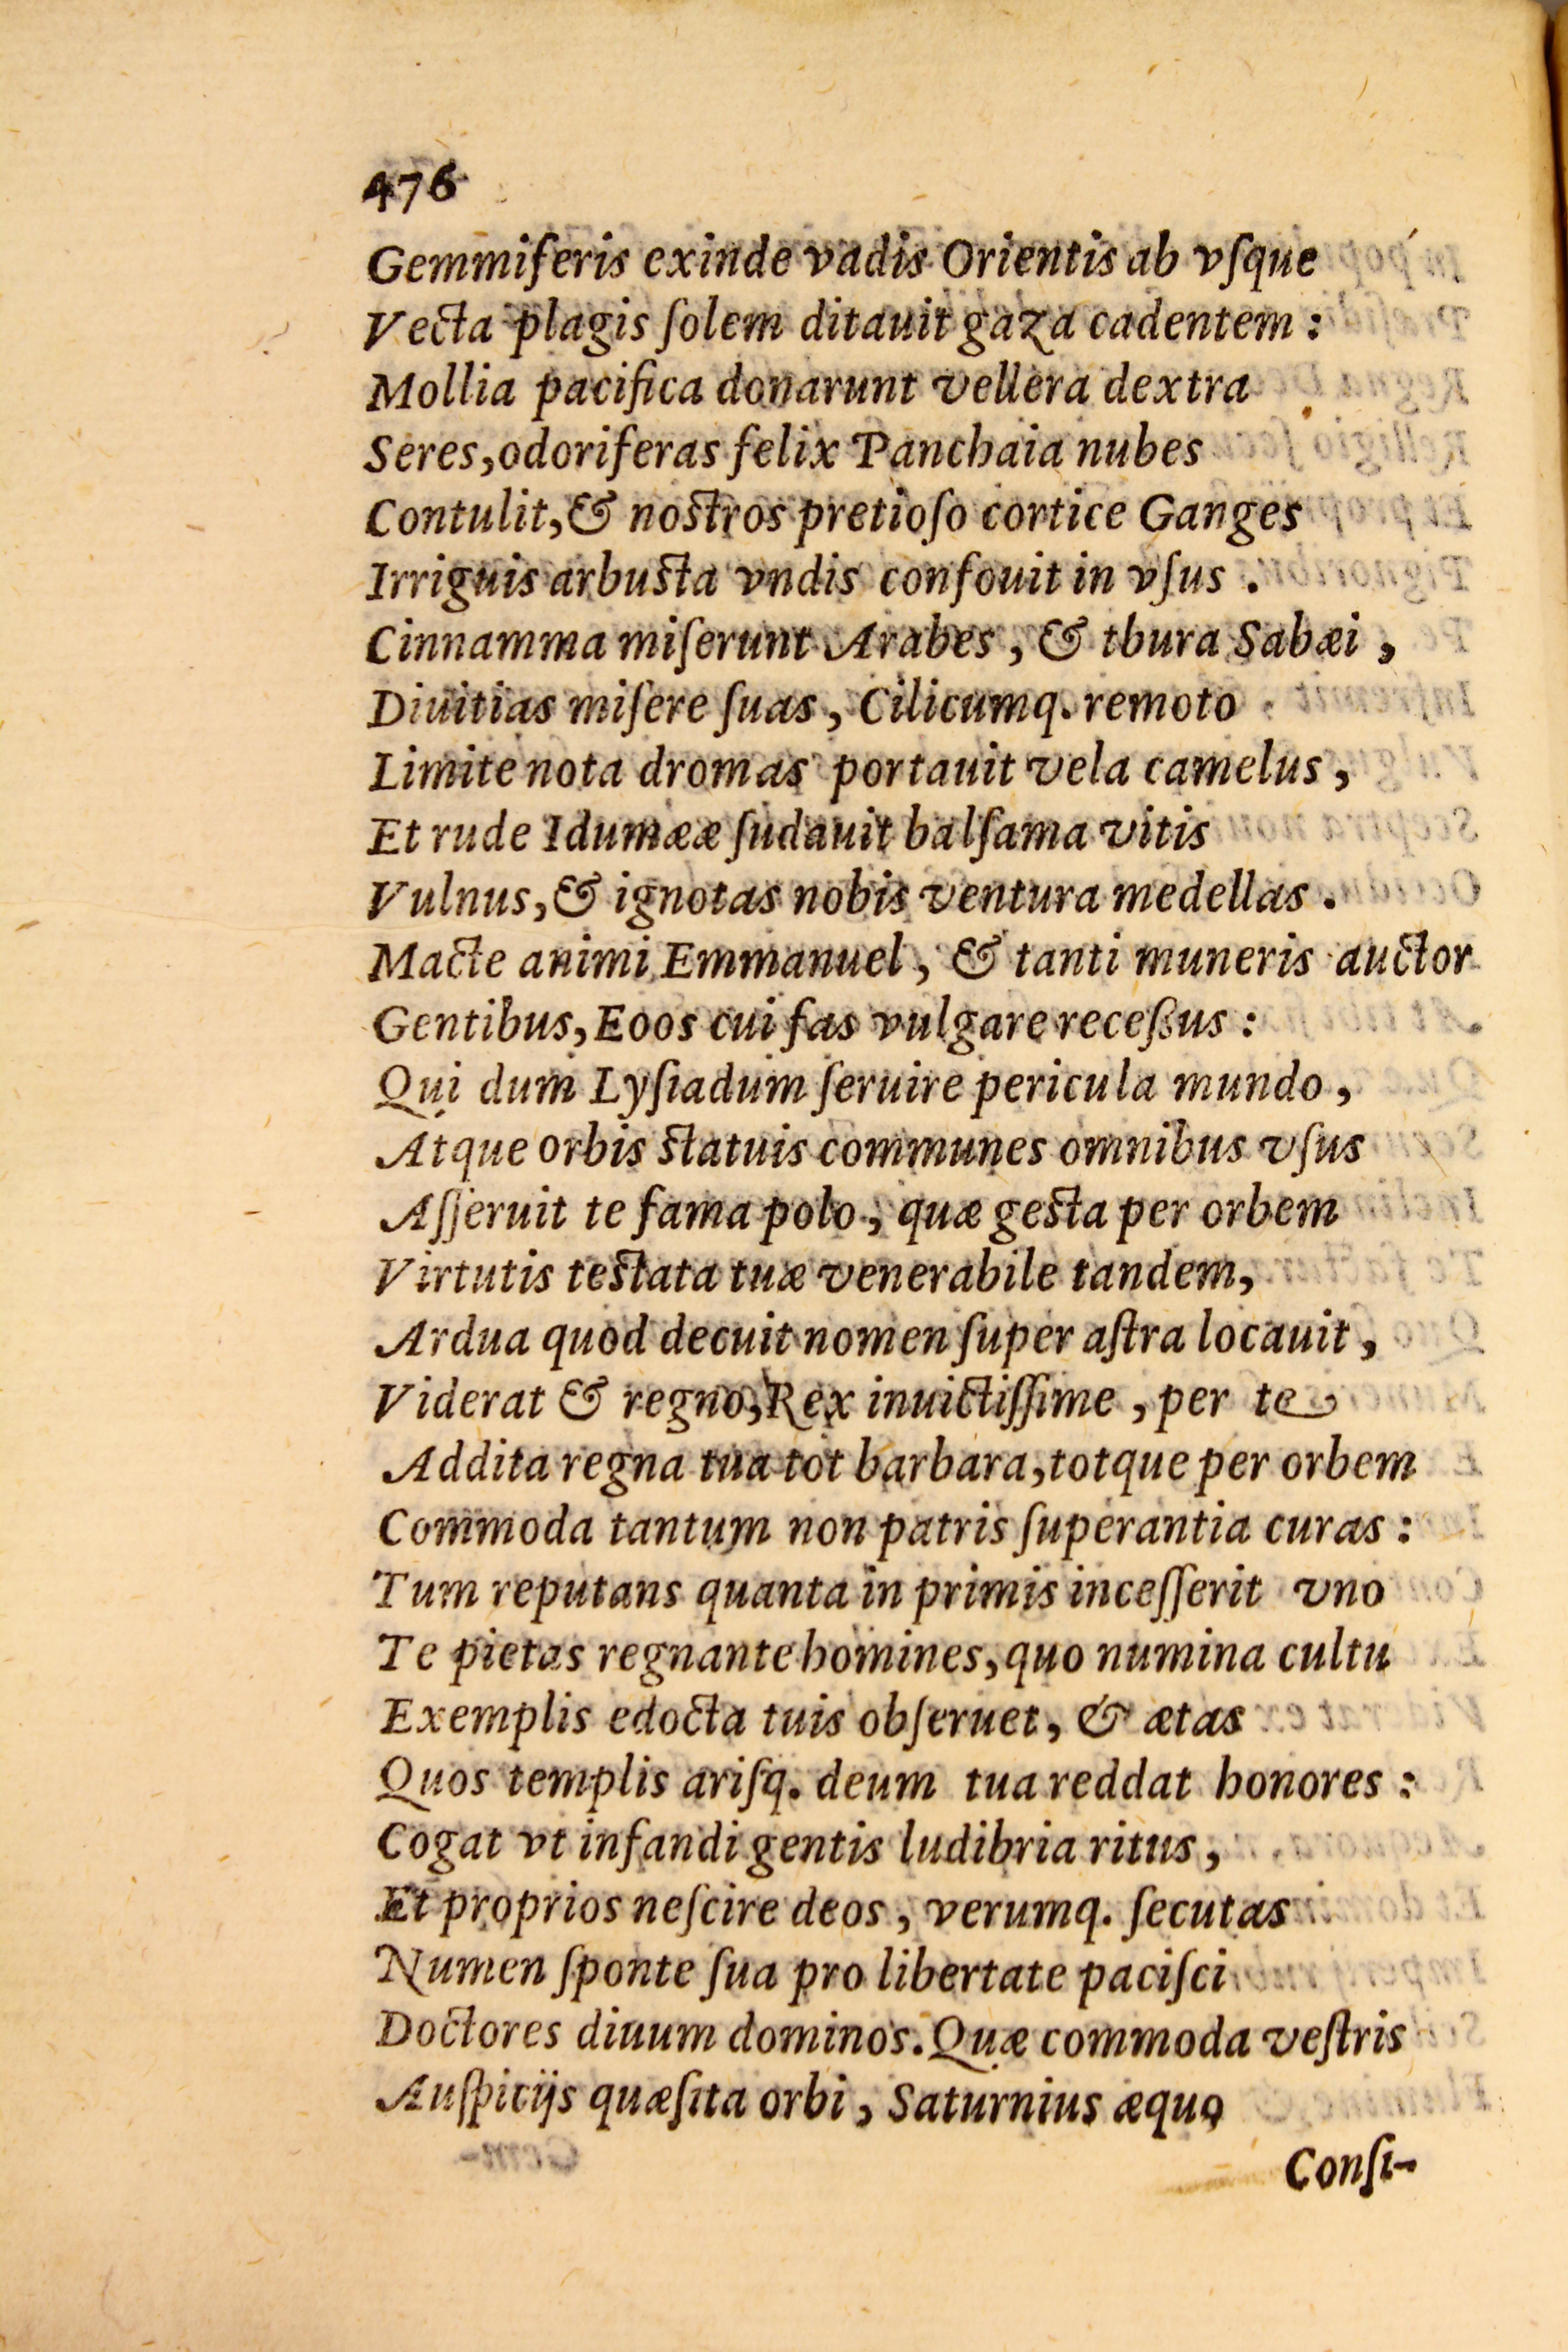 476
Gemmiferis exinde vadis Orientis ab vſque
Vecta plagis ſolem ditauit gaza cadentem :
Mollia pacifica donarunt vellera dextra
Seres,odoriferas felix Panchaia nubes
Contulit,& nostros pretioſo cortice Ganges
Irriguis arbusta vndis confouit in vſus .
Cinnamma miſerunt Arabes , & thura Sabæi ,
Diuitias miſere ſuas , Cilicumq. remoto
Limite nota dromas portauit vela camelus ,
Et rude Idumææ ſudauit balſama vitis
Vulnus,& ignotas nobis ventura medellas .
Macte animi Emmanuel , & tanti muneris auctor
Gentibus,Eoos cui fas vulgare receßus :
Qui dum Lyſiadum ſeruire pericula mundo ,
Atque orbis statuis communes omnibus vſus
Aſſeruit te fama polo , quæ gesta per orbem
Virtutis testata tuæ venerabile tandem,
Ardua quod decuit nomen ſuper aſtra locauit ,
Viderat & regno,Rex inuictiſſime , per te
Addita regna tua tot barbara,totque per orbem
Commoda tantum non patris ſuperantia curas :
Tum reputans quanta in primis inceſſerit vno
Te pietas regnante homines,quo numina cultu
Exemplis edocta tuis obſeruet, & ætas
Quos templis ariſq. deum tua reddat honores :
Cogat vt infandi gentis ludibria ritus ,
Et proprios neſcire deos , verumq. ſecutas
Numen ſponte ſua pro libertate paciſci
Doctores diuum dominos. Quæ commoda veſtris
Auſpicijs quæſita orbi , Saturnius æquo
Conſi-